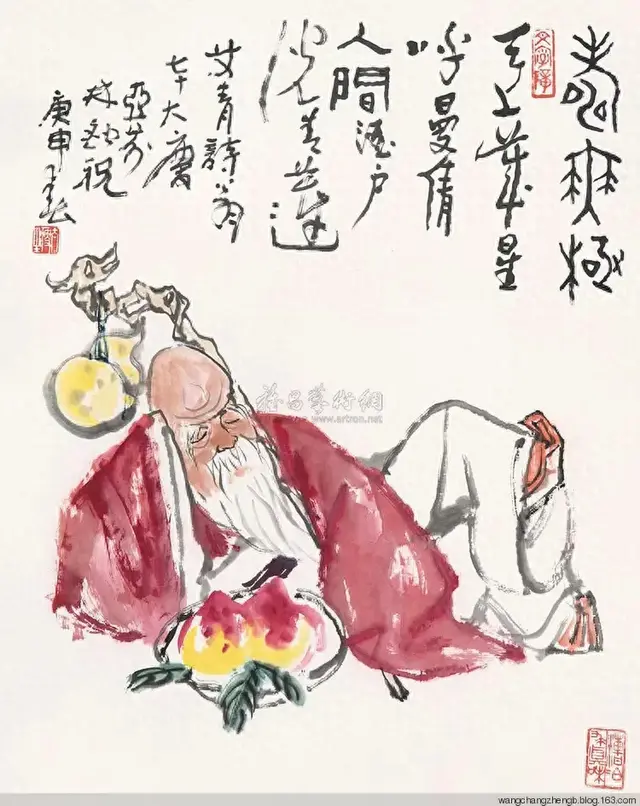 壽無極
天上歲星
呼曼倩
人間酒户
青蓮
艾青詩翁
七十大慶
林鍇祝
庚申
雅昌藝術網
www.artron.net
wangchangzhengb.blog.163.com